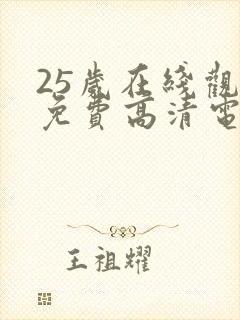 25歲在綫觀
免費高清電
王祖耀